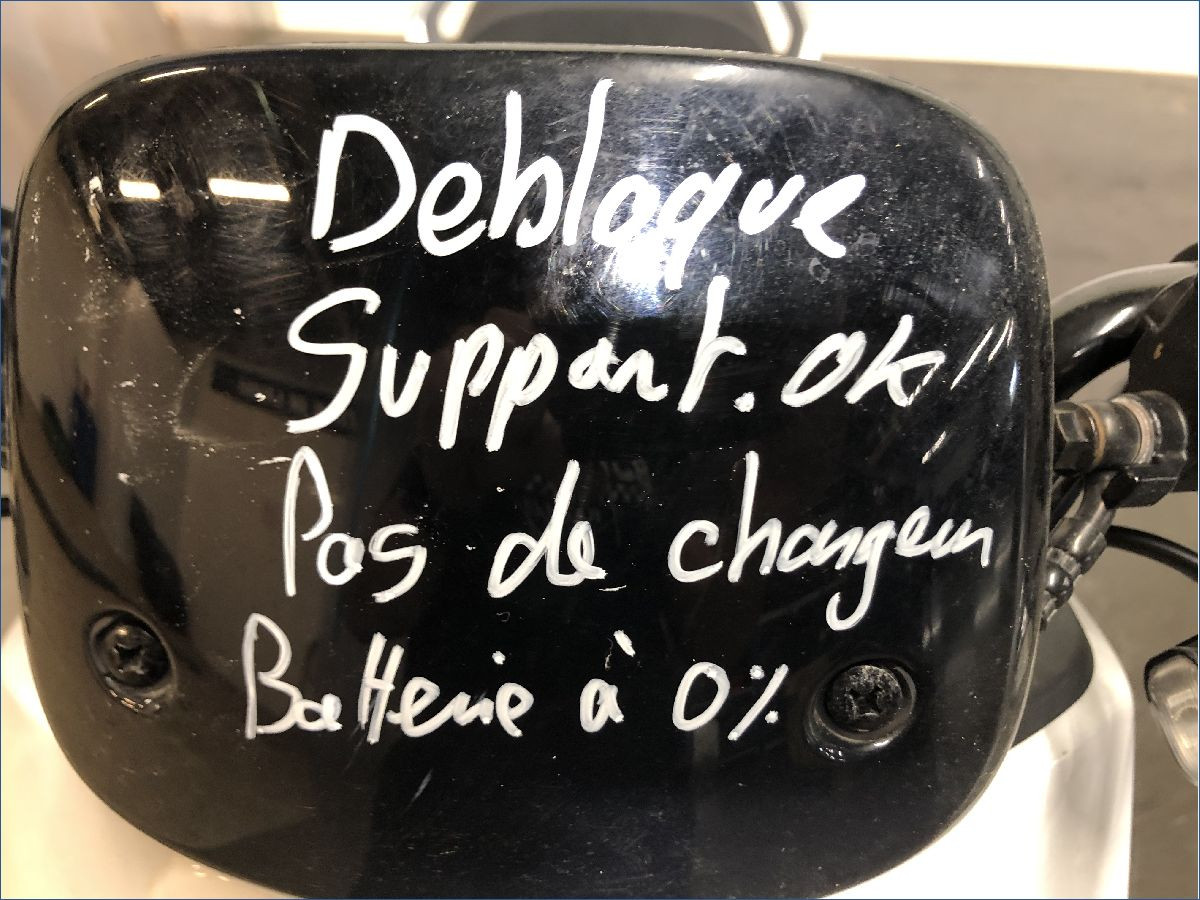 Debloque
Support. OK
Pas de chargeur
Batterie à 0%